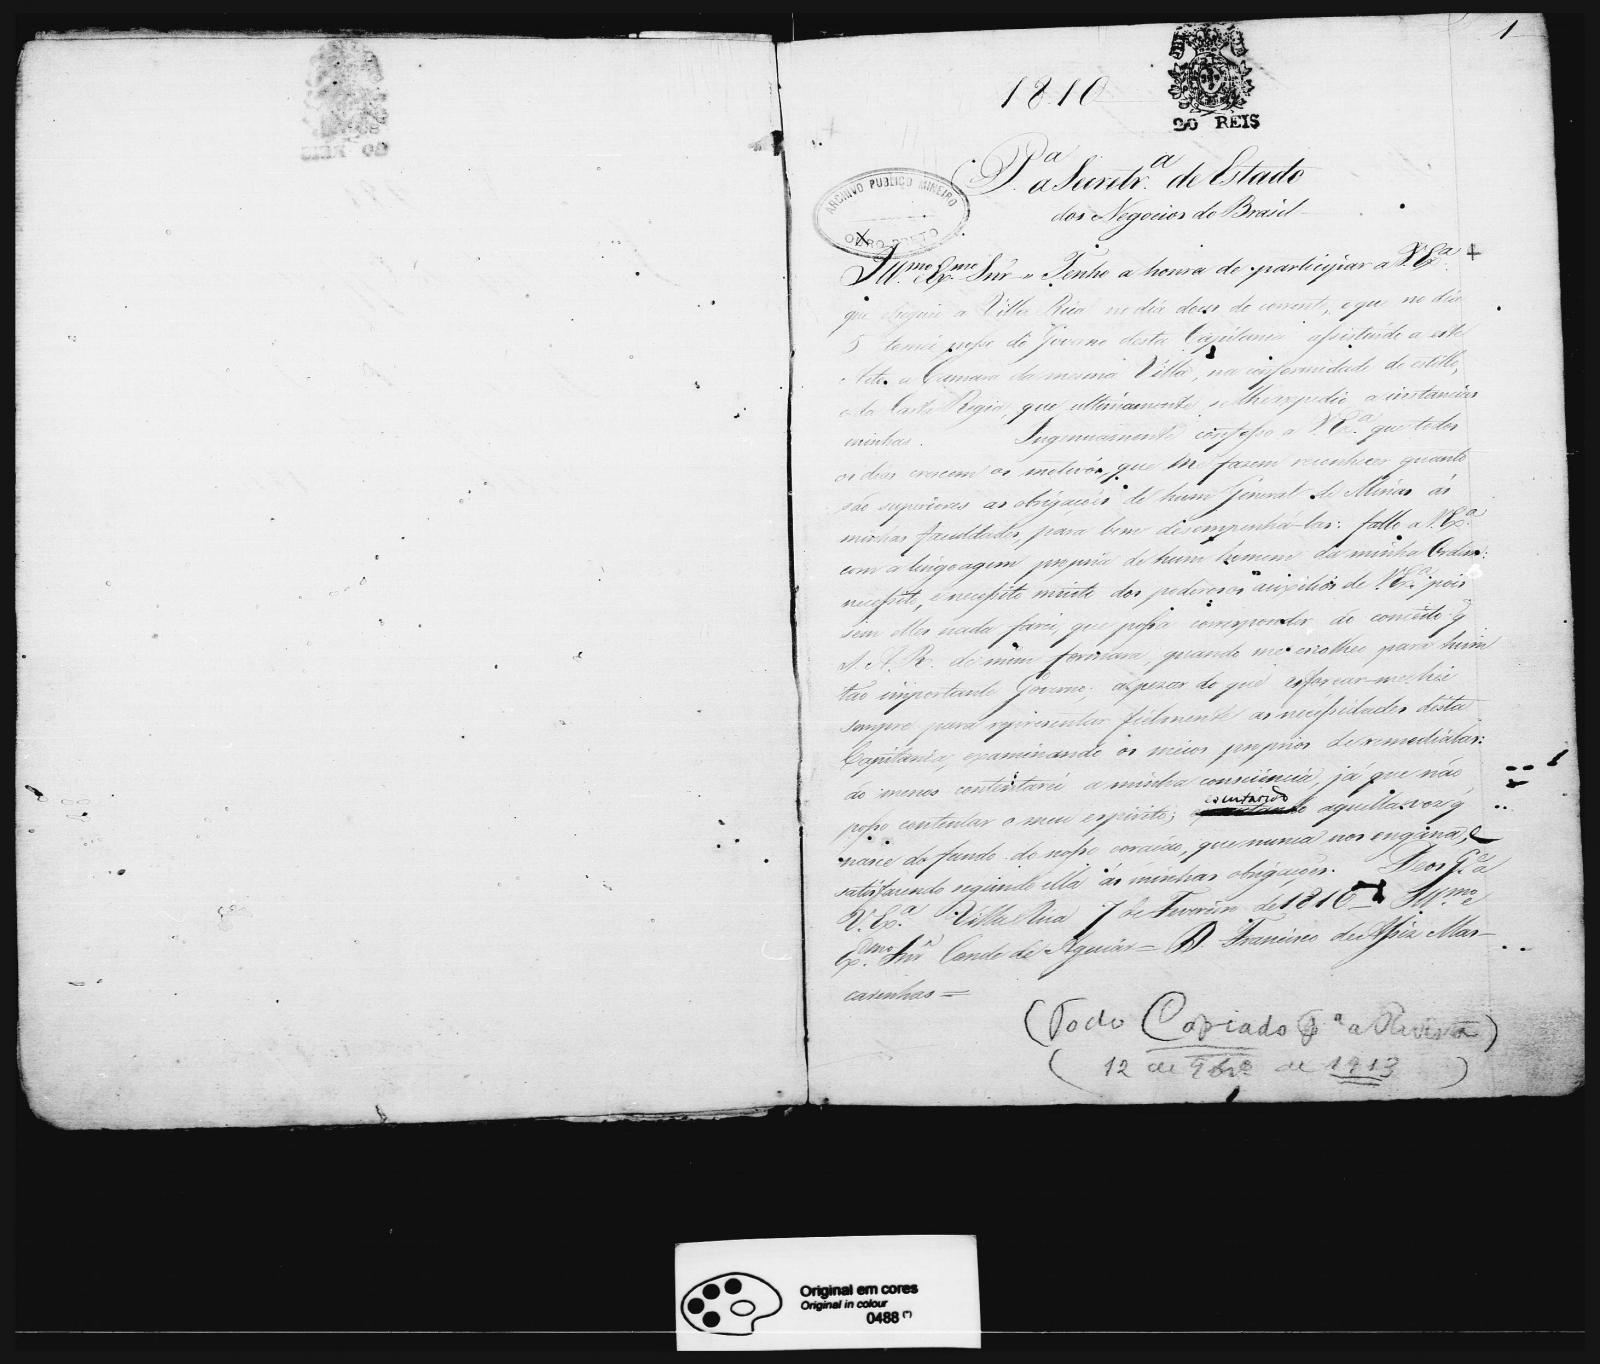 1
1810
20 REIS
P.ª a Secretr.ª de Estado
dos Negocios do Brasil
ARCHIVO PUBLICO MINEIRO
OURO PRETO
Ill.mo Ex.mo Snr = Tenho a honra de participar a V.Ex.ª
que cheguei a Villa Rica no dia doze do corrente, e que no dia
5 tomei posse do Governo desta Capitania assistindo a este
Acto a Camara da mesma Villa, na conformidade do estillo,
e da Carta Regia que ultimamente se lhe expedio a instancias
minhas. Ingenuamente confesso a V.Ex.ª que todos
os dias crescem os motivos, que me fazem reconhecer quanto
são superiores as obrigações de hum General de Minas ás
minhas faculdades, para bem desempenhá-las: fallo a V.Ex.ª
com a lingoagem propria de hum homem da minha Ordem:
necessito, e necessito muito dos poderosos auxilios de V.Ex.ª pois
sem elles nada farei, que possa corresponder ao conceito q
S. A. R. de mim formara, quando me escolheo para hum
tão importante Governo; apezar de que esforcar-me hei
sempre para representar fielmente as necessidades desta
Capitania, examinando os meios proprios de remedialas:
ao menos contentarei a minha consciencia, já que não
posso contentar o meu espirito; escutando aquella voz q
nasce do fundo do nosso coração, que nunca nos engana, e
satisfazendo segundo ella ás minhas obrigações. Deos G.e a
V.Ex.ª Villa Rica 7 de Fevereiro de 1810 = Ill.mo e
Ex.mo Snr Conde de Aguiar = D. Francisco de Assiz Mas-
carenhas =
(Todo Copiado p.ª a Revista)
(12 de 9bro de 1913)
Original em cores
Original in colour
0488 (*)